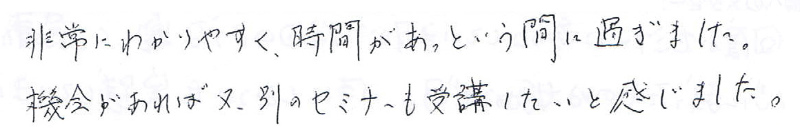 非常にわかりやすく、時間があっという間に過ぎました。
機会があれば又、別のセミナーも受講したいと感じました。